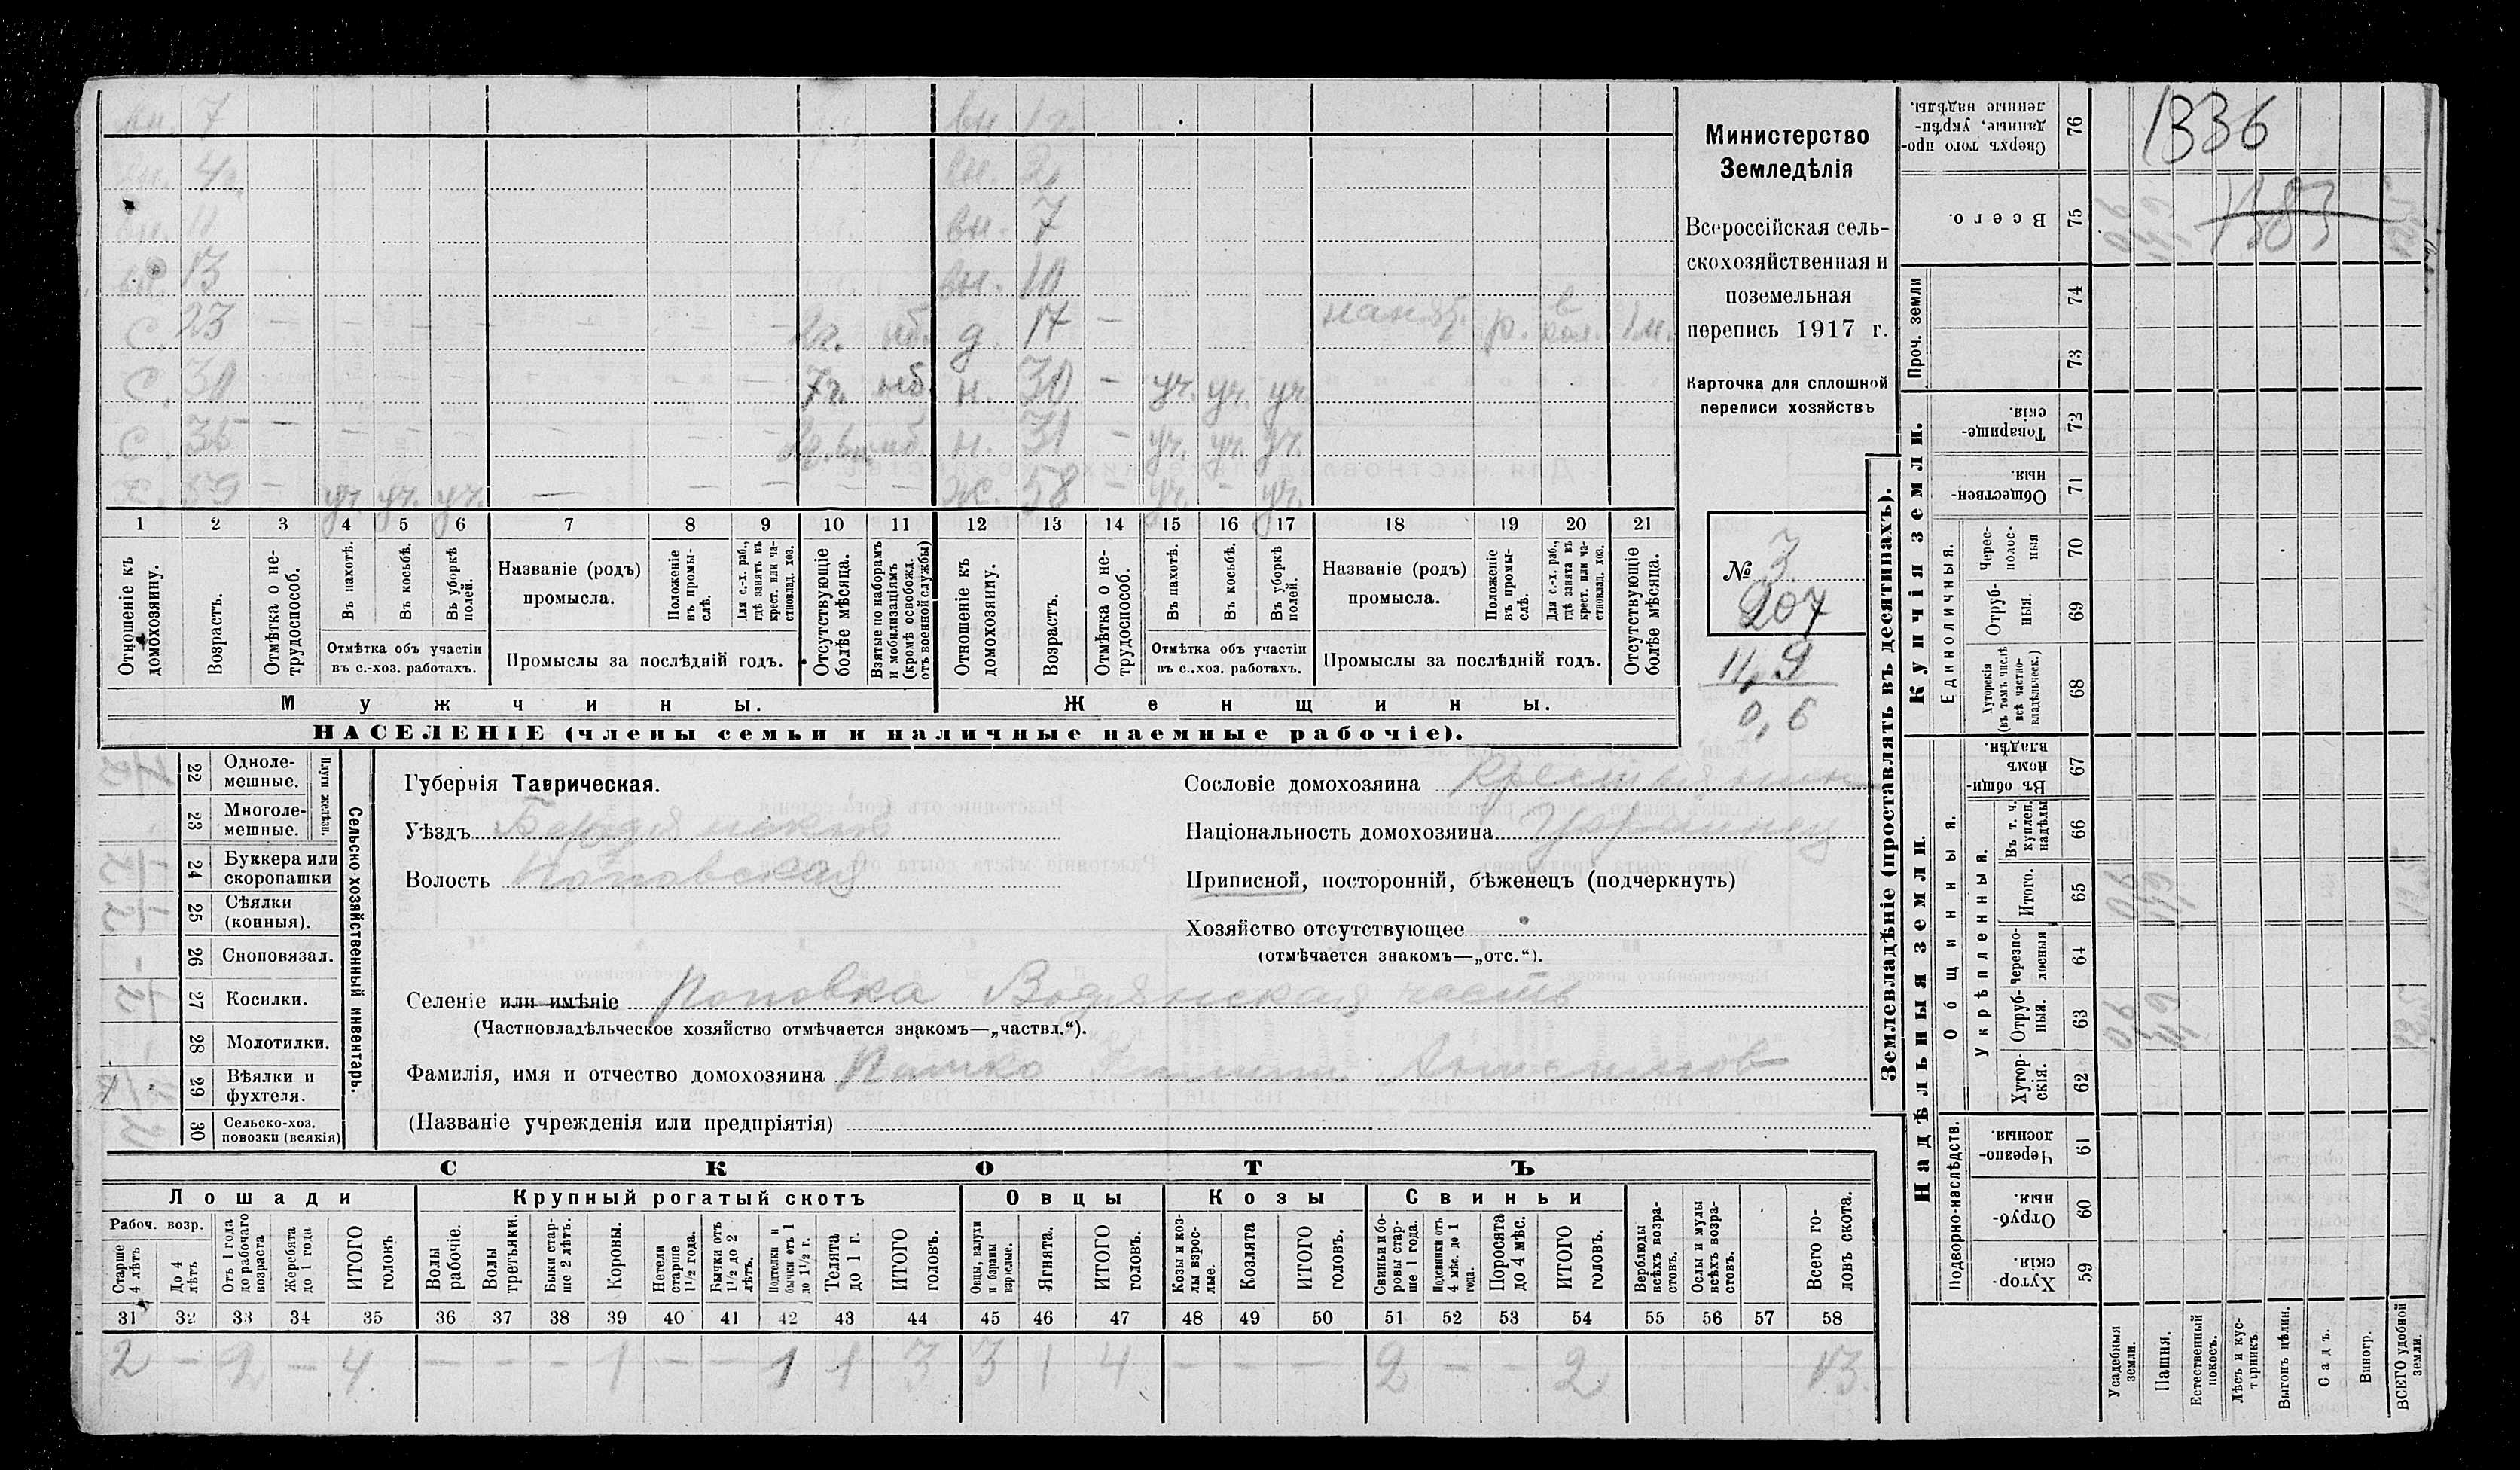 вн. 7 вн. 1 г.
4 вн. 2
11 вн. 7
13 вн. 10
С. 23 — — — — — — — 2г. мб. д. 17 — наняв. р. в 1 м.
С. 30 — 7г. мб. н. 30 — уч. уч. уч.
С. 35 — — — — — — мб. н. 31 — уч. уч. уч.
Х. 59 — уч. уч. уч. — — — — — ж. 58 — уч. — уч.
1 2 3 4 5 6 7 8 9 10 11 12 13 14 15 16 17 18 19 20 21
Отношеніе къ домохозяину.
Возрастъ.
Отмѣтка о не-трудоспособ.
Въ пахотѣ.
Въ косьбѣ.
Въ уборкѣ полей.
Отмѣтка объ участіи
въ с.-хоз. работахъ.
Названіе (родъ)
промысла.
Положеніе въ промы-слѣ.
Для с.-х. раб., гдѣ занятъ въ крест. или ча-стновлад. хоз.
Промыслы за послѣдній годъ.
Отсутствующіе болѣе мѣсяца.
Взятые по наборамъ и мобилизаціямъ (кромѣ освобожд. отъ военной службы)
Отношеніе къ домохозяину.
Возрастъ.
Отмѣтка о не-трудоспособ.
Въ пахотѣ.
Въ косьбѣ.
Въ уборкѣ полей.
Отмѣтка объ участіи
въ с..хоз. работахъ.
Названіе (родъ)
промысла.
Положеніе въ промы-слѣ.
Для с.-х. раб., гдѣ занята въ крест. или ча-стновлад. хоз.
Промыслы за послѣдній годъ.
Отсутствующіе болѣе мѣсяца.
Мужчины. Женщины.
НАСЕЛЕНІЕ (члены семьи и наличные наемные рабочіе).
Министерство
Земледѣлія
Всероссійская сель-
скохозяйственная и
поземельная
перепись 1917 г.
Карточка для сплошной
переписи хозяйствъ
№ 3
207
11,9
0,6
22 Одноле-мешные.
23 Многоле-мешные.
Плуги желѣзн.
24 Буккера или скоропашки
25 Сѣялки (конныя).
26 Сноповязал.
27 Косилки.
28 Молотилки.
29 Вѣялки и фухтеля.
30 Сельско-хоз. повозки (всякія)
Сельско-хозяйственный инвентарь.
Губернія Таврическая.
Уѣздъ Бердянский
Волость Поповская
Селеніе или имѣніе Поповка Водянская часть
(Частновладѣльческое хозяйство отмѣчается знакомъ—„частвл.“).
Фамилія, имя и отчество домохозяина
(Названіе учрежденія или предпріятія)
Сословіе домохозяина Крестьянин
Національность домохозяина Украинец
Приписной, посторонній, бѣженецъ (подчеркнуть)
Хозяйство отсутствующее
(отмѣчается знакомъ—„отс.“).
СКОТЪ
Лошади Крупный рогатый скотъ Овцы Козы Свиньи
Рабоч. возр.
Старше 4 лѣтъ
До 4 лѣтъ
Отъ 1 года до рабочаго возраста
Жеребята до 1 года
ИТОГО головъ
Волы рабочіе.
Волы третьяки.
Быки стар-ше 2 лѣтъ.
Коровы.
Нетели старше 1½ года.
Бычки отъ 1½ до 2 лѣтъ.
Подтелки и бычки отъ 1 до 1½ г.
Телята до 1 г.
ИТОГО головъ.
Овцы, валухи и бараны взрослые.
Ягнята.
ИТОГО головъ.
Козы и коз-лы взрос-лые.
Козлята
ИТОГО головъ.
Свиньи и бо-ровы стар-ше 1 года.
Подсвинки отъ 4 мѣс. до 1 года.
Поросята до 4 мѣс.
ИТОГО головъ.
Верблюды всѣхъ возра-стовъ.
Ослы и мулы всѣхъ возра-стовъ.
Всего го-ловъ скота.
31 32 33 34 35 36 37 38 39 40 41 42 43 44 45 46 47 48 49 50 51 52 53 54 55 56 57 58
2 — 2 — 4 — — — 1 — — 1 1 3 3 1 4 — — — 2 — 2 13
Землевладѣніе (проставлять въ десятинахъ).
Купчія земли.
Надѣльныя земли.
Сверхъ того про-данные, укрѣп-ленные надѣлы. 76
Всего. 75
Проч. земли 74 73
Товарище-скія. 72
Обществен-ныя. 71
Единоличныя.
Черес-полос-ныя 70
Отруб-ныя. 69
Хуторскія (въ томъ числѣ всѣ частно-владѣльческ.) 68
Въ общи-номъ владѣн. 67
Общинныя.
Укрѣпленныя.
Въ т. ч. куплен. надѣлы 66
Итого. 65
Черезпо-лосныя 64
Отруб-ныя. 63
Хутор-скія. 62
Подворно-наслѣдств.
Черезпо-лосныя. 61
Отруб-ныя. 60
Хутор-скія. 59
Усадебныя земли.
Пашня.
Естественный покосъ.
Лѣсъ и кус-тарникъ.
Выгонъ цѣлин.
Садъ.
Виногр.
ВСЕГО удобной земли.
1336
1383